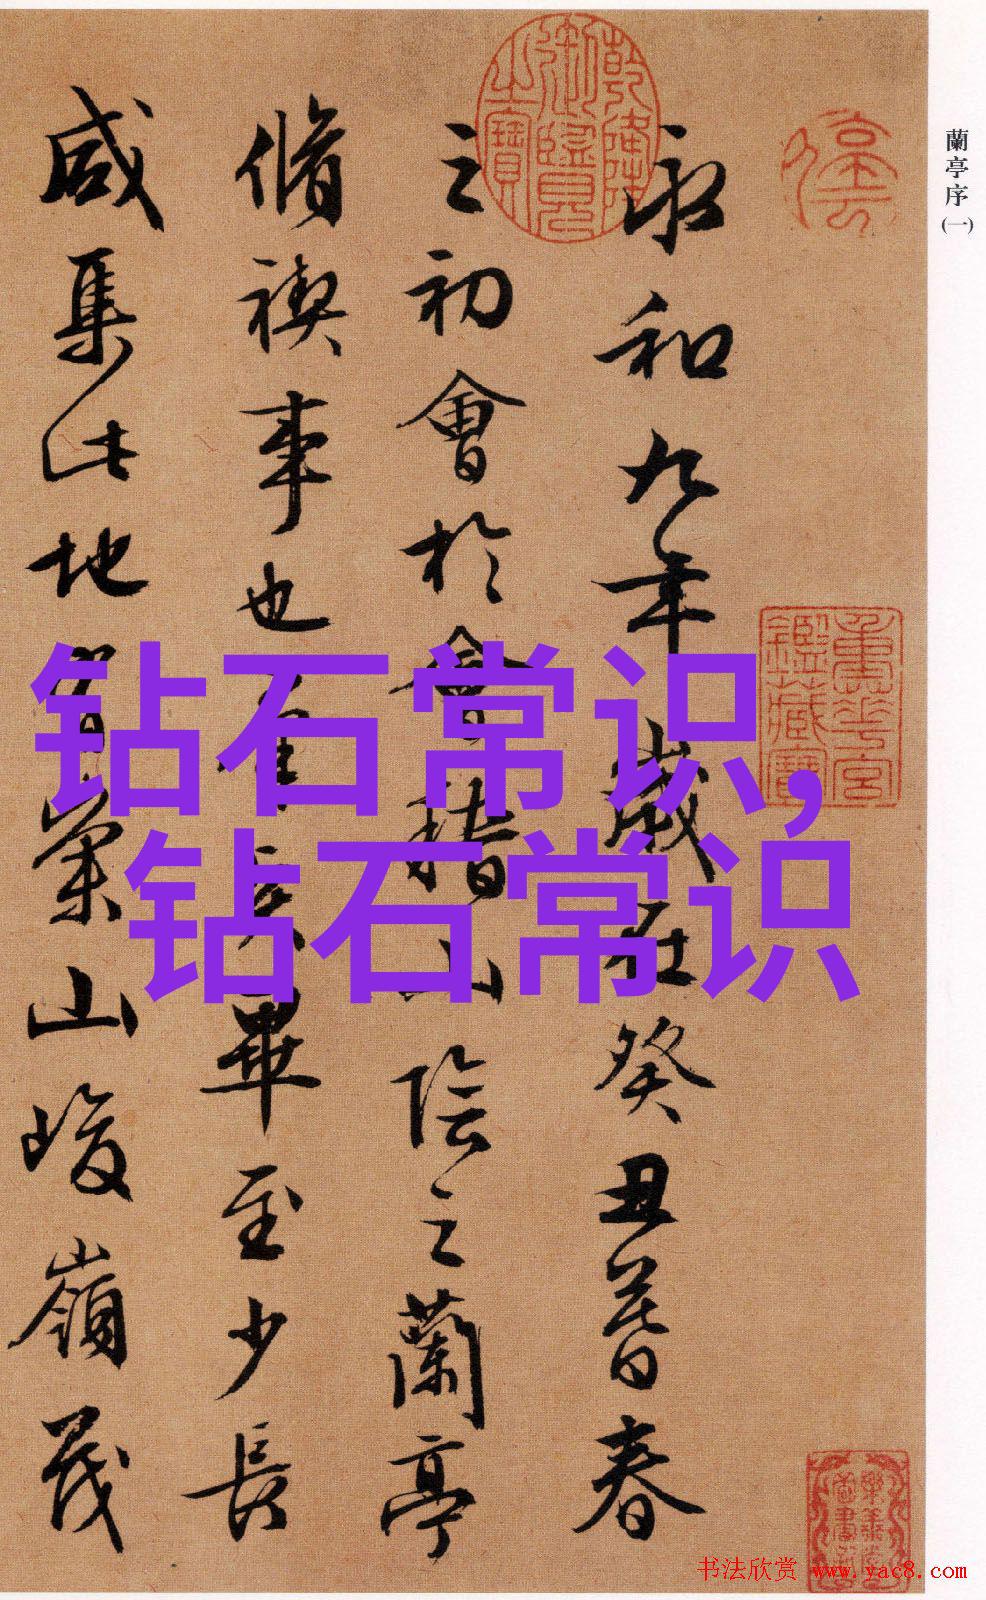 蘭亭序(一)
永和九年歲在癸丑暮春
之初會於會稽山陰之蘭亭
脩禊事也羣賢畢至少長
咸集此地有崇山峻嶺茂
乾隆御覽之寶
重華宮鑑藏寶
钻石常识,
钻石常识
书法欣赏 www.yac8.com